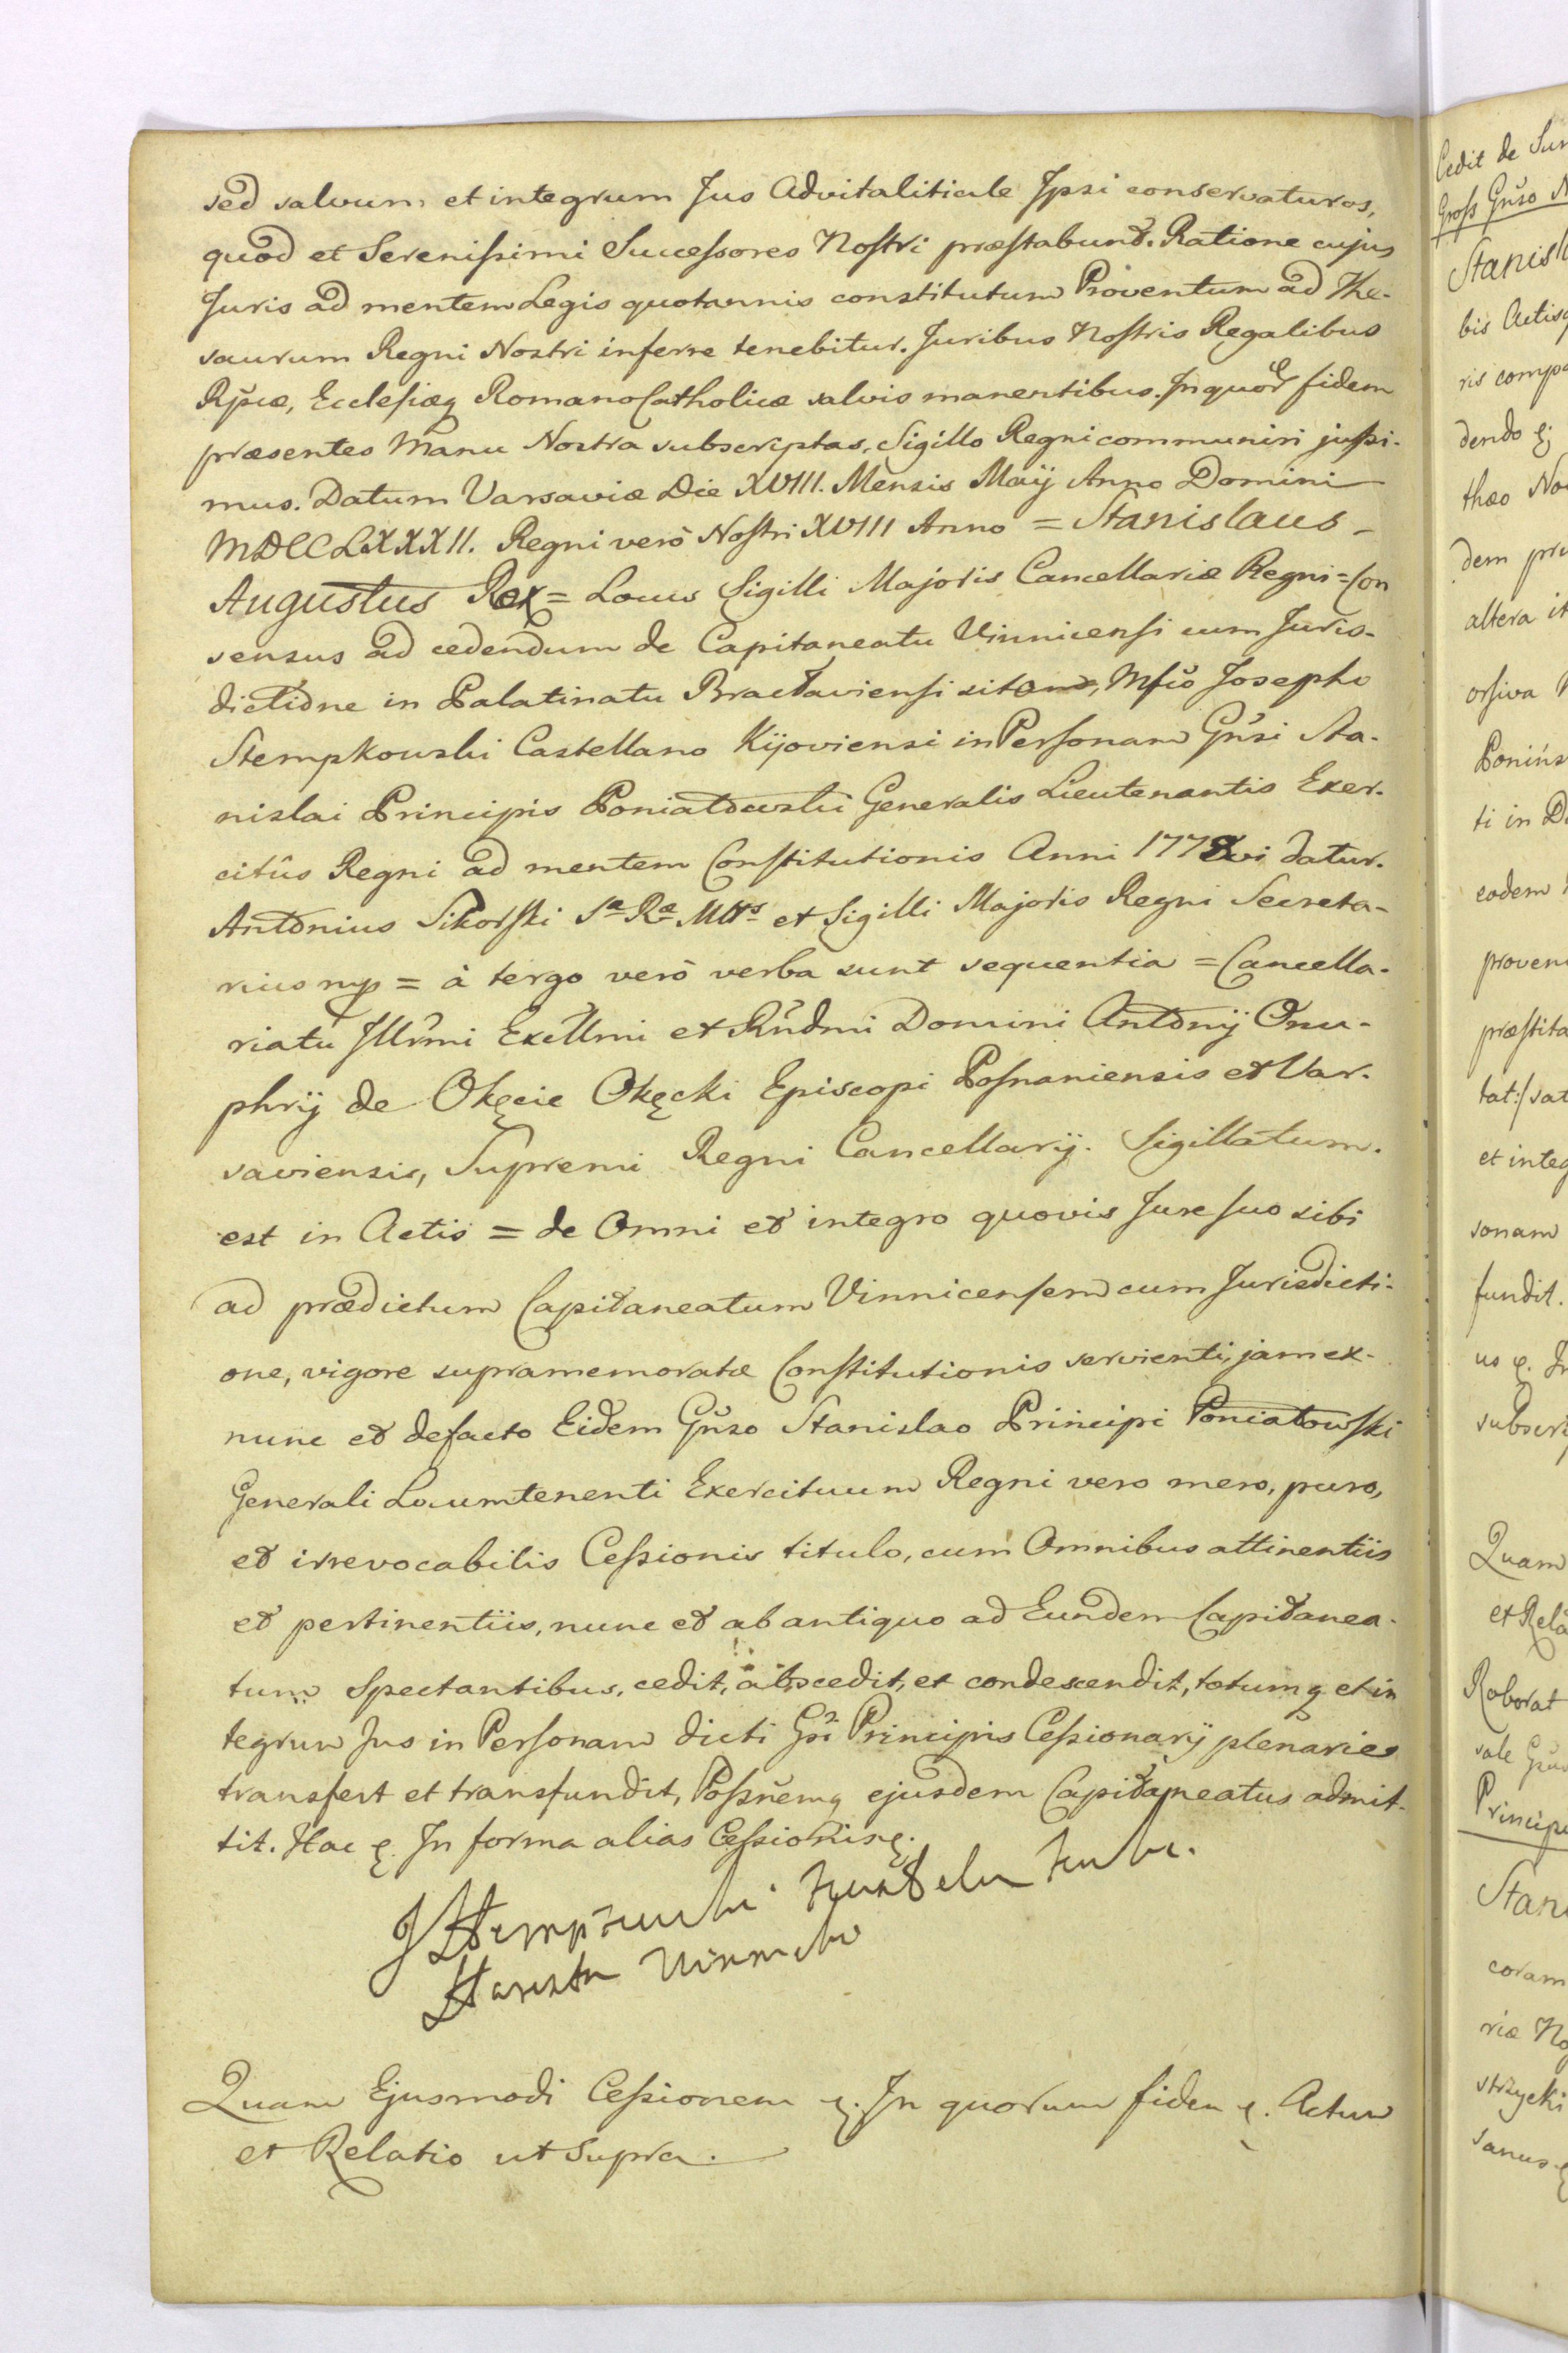 sed salvum et integrum Jus Advitalitiale Ipsi conservaturos,
quod et Serenissimi Successores Nostri præstabunt. Ratione cujus
Juris ad mentem Legis quotannis constitutum Proventum ad The-
saurum Regni Nostri inferre tenebitur. Juribus Nostris Regalibus
Rp̃cæ, Ecclesiæq Romano Catholicæ salvis manentibus. In quor fidem
præsentes Manu Nostra subscriptas, Sigillo Regni communiri jussi-
mus. Datum Varsaviæ Die XVIII. Mensis Maÿ Anno Domini
MDCCLXXXII. Regni verò Nostri XVIII Anno = Stanislaus
Augustus Rex = Locus Sigilli Majoris Cancellariæ Regni = Con
sensus ad cedendum de Capitaneatu Vinnicensi cum Juris-
dictione in Palatinatu Bractaviensi sito, Mfco Josepho
Stempkowski Castellano Kijoviensi in Personam Gñsi Sta-
nislai Principis Poniatowski Generalis Lieutenantis Exer-
citûs Regni ad mentem Constitutionis Anni datur.
Antonius Sikorski Sæ Ræ Mttis et Sigilli Majoris Regni Secreta-
rius mp = à tergo verò verba sunt sequentia = Cancella-
riatu Illr̃mi Excllmi et Rñdmi Domini Antonÿ Onu-
phrÿ de Okęcie Okęcki Episcopi Posnaniensis et Var-
saviensis, Supremi Regni Cancellarÿ. Sigillatum.
est in Actis = de Omni et integro quovis Jure suo sibi
ad prædictum Capitaneatum Vinnicensem cum Jurisdicti-
one, vigore supramemoratæ Constitutionis servienti, jam ex-
nunc et defacto Eidem Gñso Stanislao Principi Poniatowski
Generali Locumtenenti Exercituum Regni vero mero, puro,
et irrevocabilis Cessionis titulo, cum Omnibus attinentiis
et pertinentiis, nunc et ab antiquo ad Eundem Capitanea-
tum Spectantibus, cedit, abscedit, et condescendit, totumq et in
tegrum Jus in Personam dicti Gsi Principis Cessionarÿ plenarie
transfert et transfundit, Possñemq ejusdem Capitaneatus admit-
tit. Hac &. In forma alias Cessionis &.
J Stempkowski
Starosta Winnicki
Quam Ejusmodi Cessionem &. In quorum fidem &. Actum
et Relatio ut Supra.
Cedit de
Gross Gñso
Stanis
bis Actisq
ris comp
dendo
thæo
dem
altera
orsiva
Ponińs
ti in
eodem
proven
præstita
tat:/sat
et integ
sonam
fundit.
us &.
subscri
Quam
et Rela
Roborat
sale
Princip
Stan
coram
riæ
strzycki
sanus